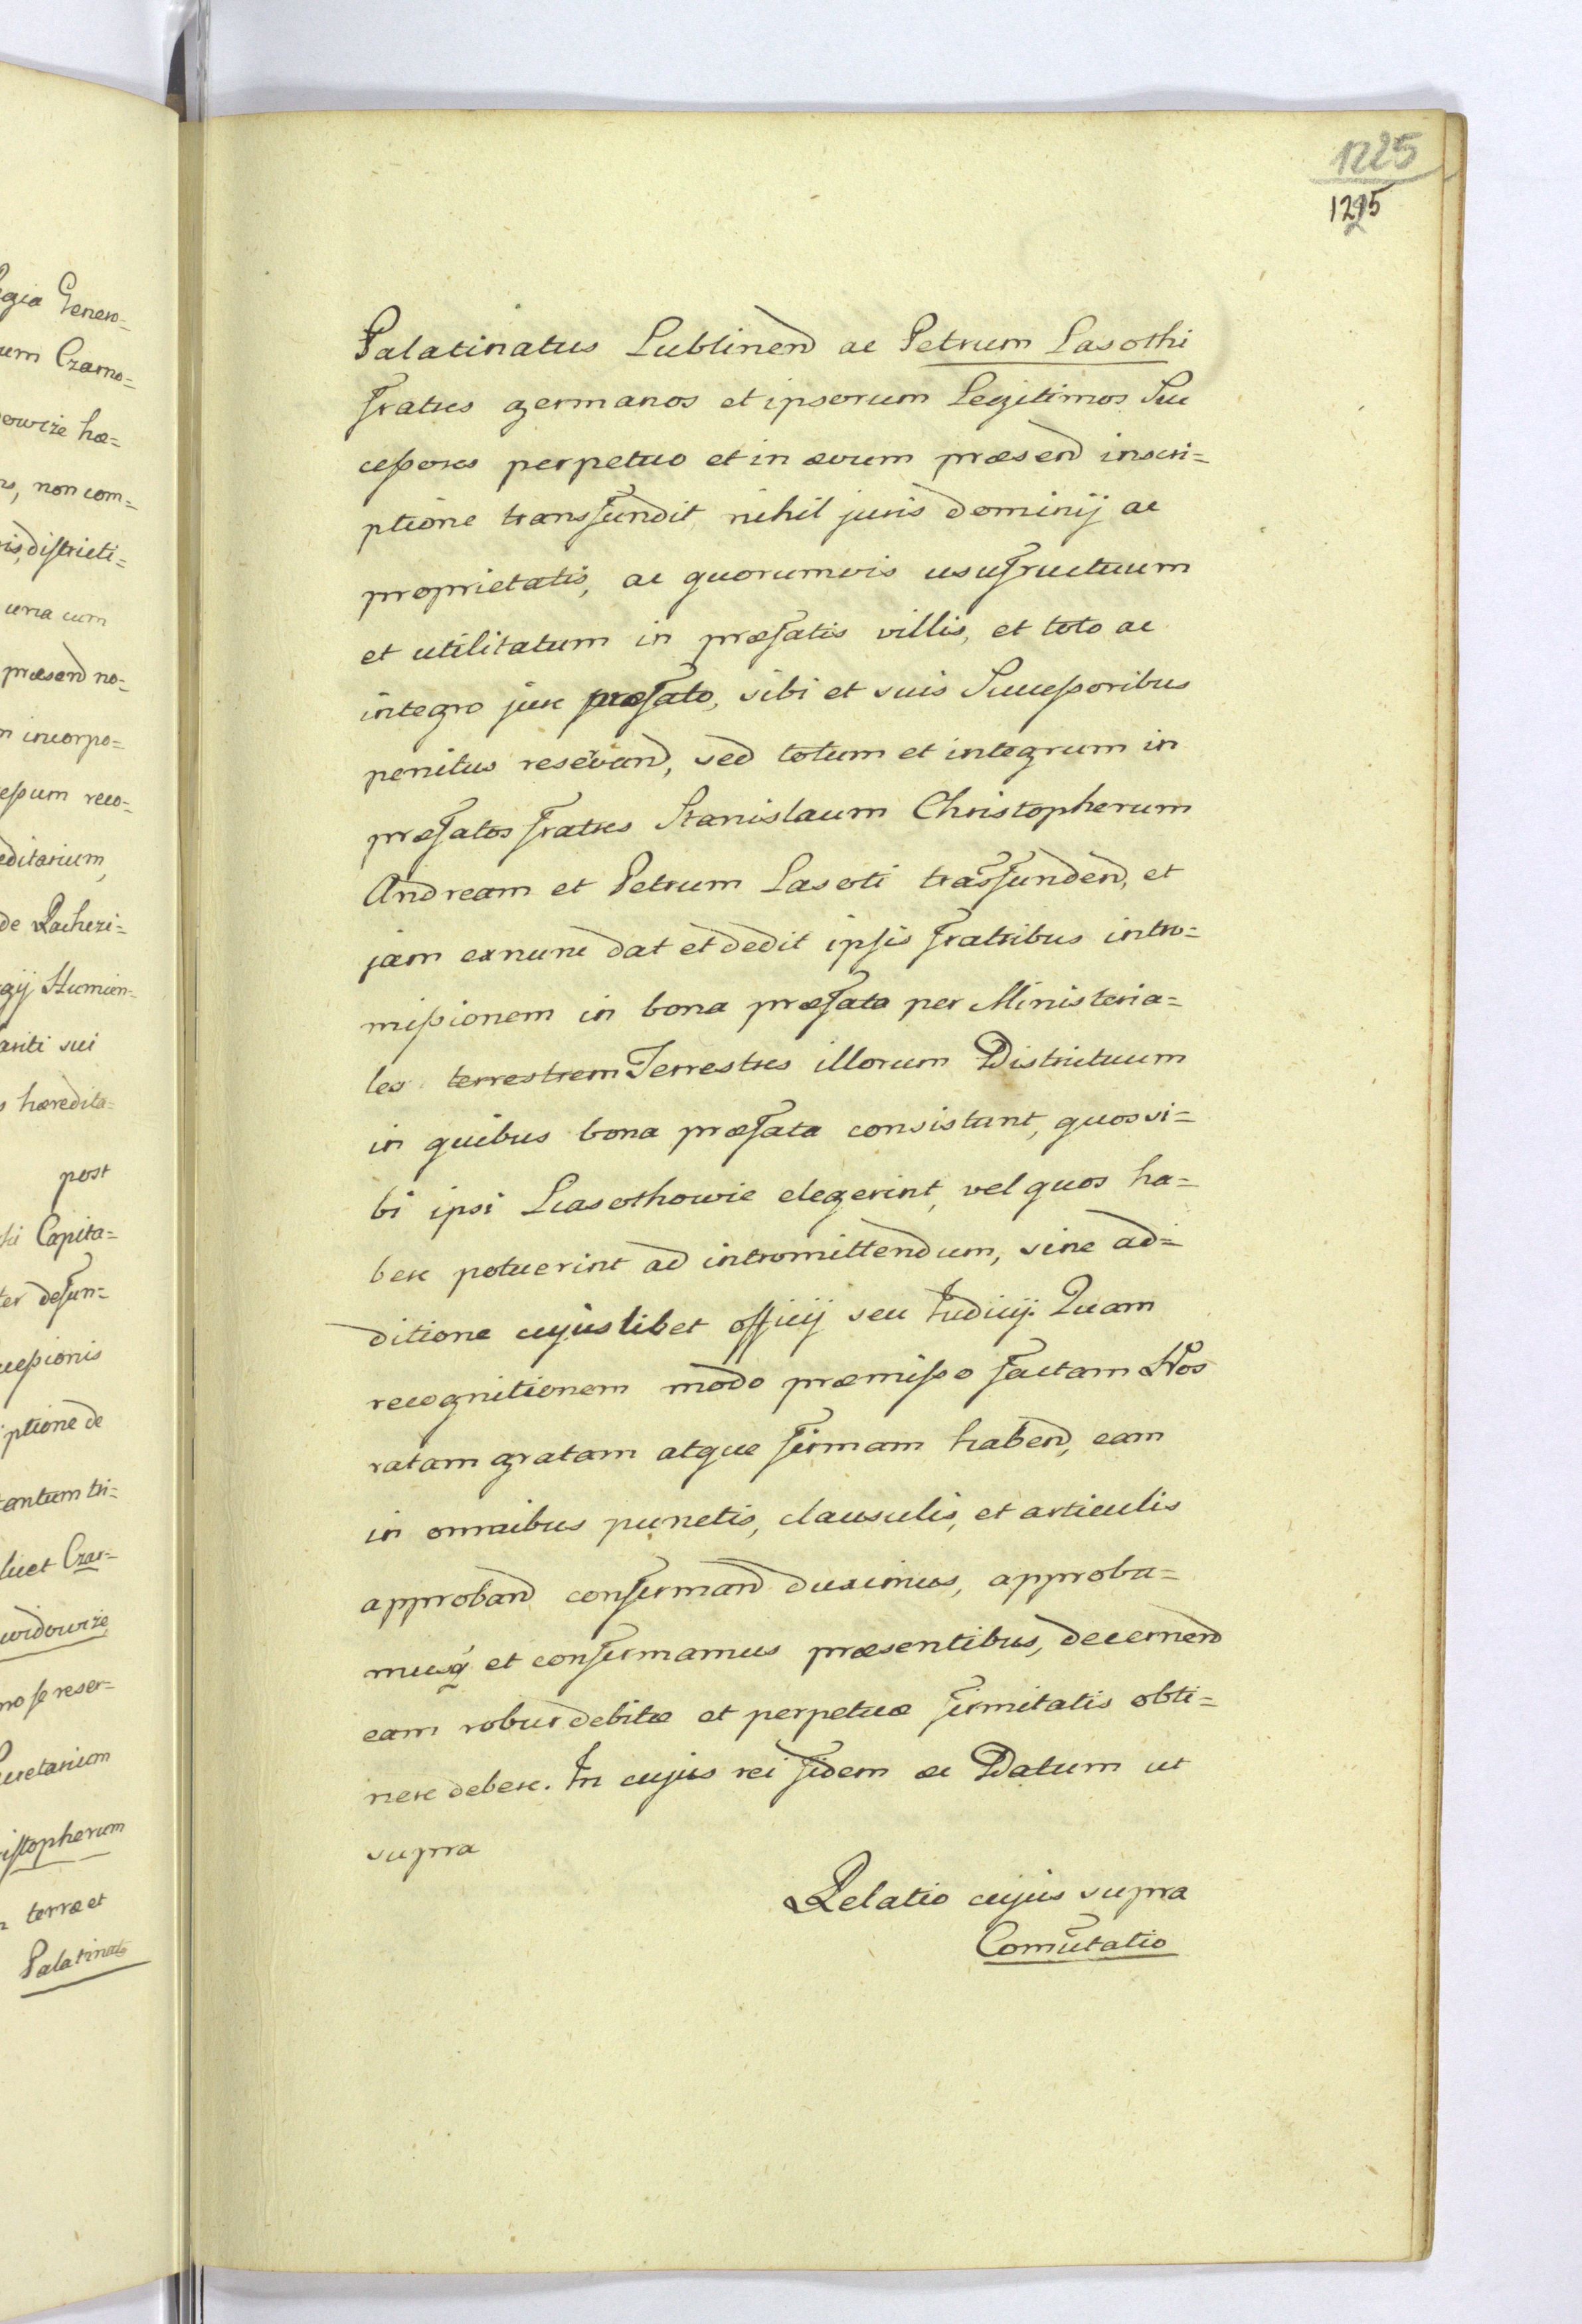 1225
1225
Palatinatus Lublinend ac Petrum Lasothi
fratres germanos et ipsorum Legitimos Suc
cessores perpetuo et in ævum præsend inscri=
ptione transfundit, nihil juris dominij ac
proprietatis, ac quorumvis usufructuum
et utilitatum in præfatis villis, et toto ac
integro jure præfato, sibi et suis Successoribus
penitus reservand, sed totum et integrum in
præfatos fratres Stanislaum Christopherum
Andream et Petrum Lasoti trasfundend, et
jam exnunc dat et dedit ipsis fratribus intro=
missionem in bona præfata per Ministeria=
les terrestrem Terrestres illorum Districtuum
in quibus bona præfata consistunt, quos si=
bi ipsi Lasothowie elegerint, vel quos ha=
bere potuerint ad intromittendum, sine ad=
ditione cujuslibet officij seu Judicij. Quam
recognitionem modo præmisso factam Nos
ratam gratam atque firmam habend, eam
in omnibus punctis, clausulis, et articulis
approband confirmand duximus, approba=
musq́ et confirmamus præsentibus, decernend
eam robur debitæ et perpetuæ firmitatis obti=
nere debere. In cujus rei fidem ac Datum ut
supra
Relatio cujus supra
Com̄utatio
gia Genero=
um Czarno=
owize hæ=
non com=
is, districti=
una cum
præsend no=
incorpo=
essum reco=
editarium,
de Raczhezi=
gij Humien=
ariti sui
hæredita=
post
Capita=
ter defun=
cessionis
ptione de
tantum tri=
licet Czar=
widowize
no se reser=
cretarium
istopherum
terræ et
Palatinats